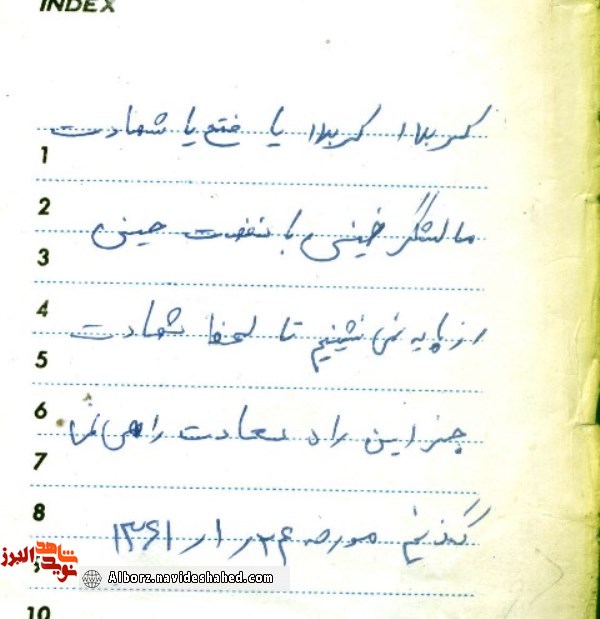 INDEX
کربلا کربلا یا فتح یا شهادت
1
2
ما لشگر خمینی با نهضت حسینی
3
4
از پا نمی نشینیم تا لحظه شهادت
5
6
جز این راه سعادت راهی
7
8
مورخه ۲۴ ر ۱ ر ۱۳۶۱
نوید شاهد البرز
Alborz.navideshahed.com
10